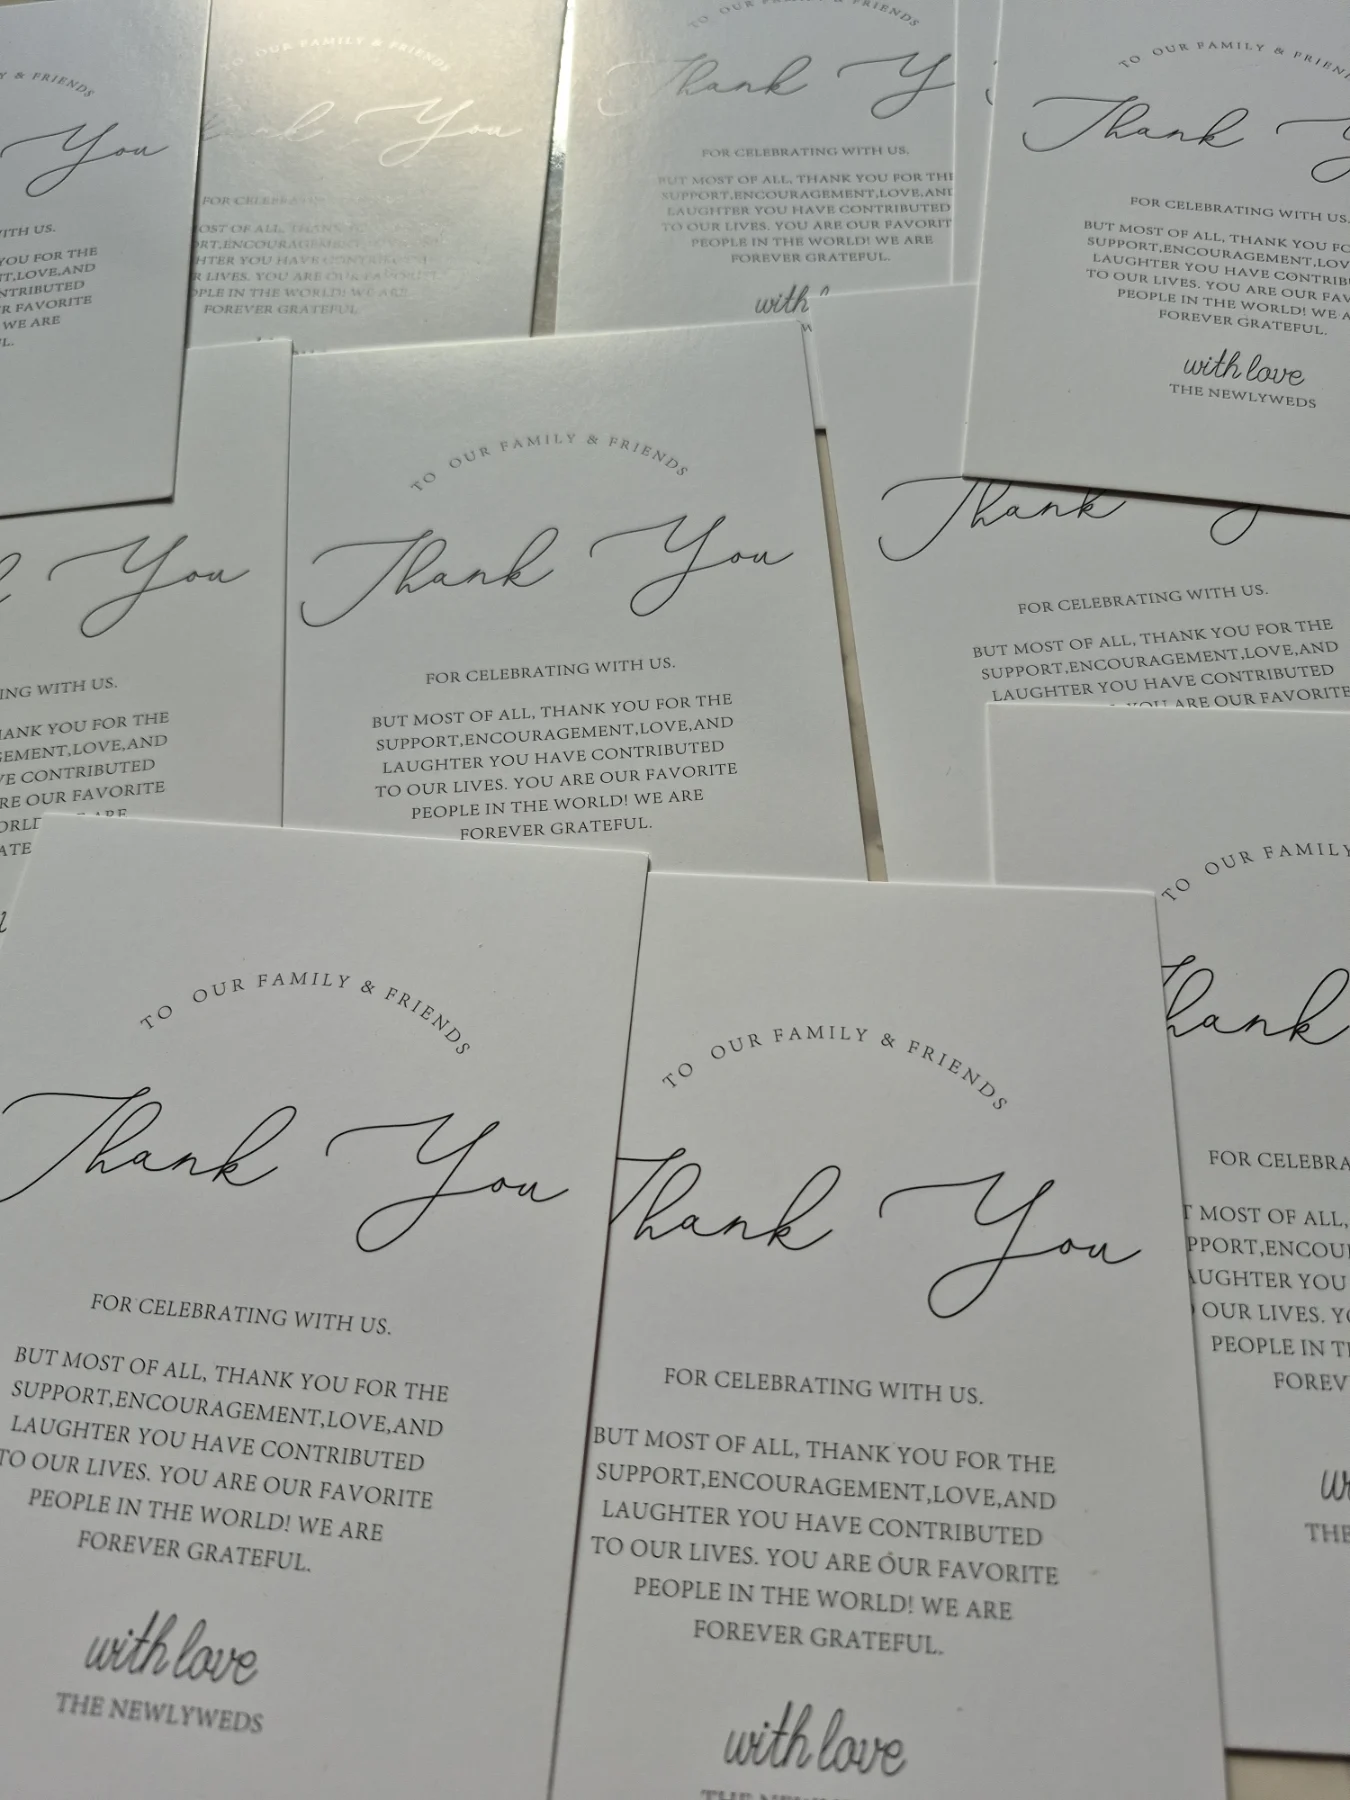 Y & FRIENDS
You
ITH US.
YOU FOR THE
T,LOVE,AND
NTRIBUTED
R FAVORITE
WE ARE
L.
TO OUR FAMILY & FRIENDS
You
FOR
OST OF ALL,
RT,ENCOURAGEMENT
HTER YOU HAVE
R LIVES. YOU ARE OUR FAVORITE
PLE IN THE WORLD! WE ARE
FOREVER GRATEFUL.
TO OUR FAMILY & FRIENDS
Thank Y
FOR CELEBRATING WITH US.
BUT MOST OF ALL, THANK YOU FOR THE
SUPPORT,ENCOURAGEMENT,LOVE,AND
LAUGHTER YOU HAVE CONTRIBUTED
TO OUR LIVES. YOU ARE OUR FAVORIT
PEOPLE IN THE WORLD! WE ARE
FOREVER GRATEFUL.
with
TO OUR FAMILY & FRIEN
Thank
FOR CELEBRATING WITH US.
BUT MOST OF ALL, THANK YOU FO
SUPPORT,ENCOURAGEMENT,LOV
LAUGHTER YOU HAVE CONTRIB
TO OUR LIVES. YOU ARE OUR FAV
PEOPLE IN THE WORLD! WE A
FOREVER GRATEFUL.
with love
THE NEWLYWEDS
You
ING WITH US.
ANK YOU FOR THE
GEMENT,LOVE,AND
VE CONTRIBUTED
RE OUR FAVORITE
ORLD ARE
ATE
TO OUR FAMILY & FRIENDS
Thank You
FOR CELEBRATING WITH US.
BUT MOST OF ALL, THANK YOU FOR THE
SUPPORT,ENCOURAGEMENT,LOVE,AND
LAUGHTER YOU HAVE CONTRIBUTED
TO OUR LIVES. YOU ARE OUR FAVORITE
PEOPLE IN THE WORLD! WE ARE
FOREVER GRATEFUL.
Thank
FOR CELEBRATING WITH US.
BUT MOST OF ALL, THANK YOU FOR THE
SUPPORT,ENCOURAGEMENT,LOVE,AND
LAUGHTER YOU HAVE CONTRIBUTED
YOU ARE OUR FAVORITE
TO OUR FAMILY & FRIENDS
Thank You
FOR CELEBRATING WITH US.
BUT MOST OF ALL, THANK YOU FOR THE
SUPPORT,ENCOURAGEMENT,LOVE,AND
LAUGHTER YOU HAVE CONTRIBUTED
TO OUR LIVES. YOU ARE OUR FAVORITE
PEOPLE IN THE WORLD! WE ARE
FOREVER GRATEFUL.
with love
THE NEWLYWEDS
TO OUR FAMILY & FRIENDS
Thank You
FOR CELEBRATING WITH US.
BUT MOST OF ALL, THANK YOU FOR THE
SUPPORT,ENCOURAGEMENT,LOVE,AND
LAUGHTER YOU HAVE CONTRIBUTED
TO OUR LIVES. YOU ARE OUR FAVORITE
PEOPLE IN THE WORLD! WE ARE
FOREVER GRATEFUL.
with love
TO OUR FAMILY
hank
FOR CELEBRA
T MOST OF ALL,
PPORT,ENCOU
AUGHTER YOU
OUR LIVES. YO
PEOPLE IN T
FOREV
THE